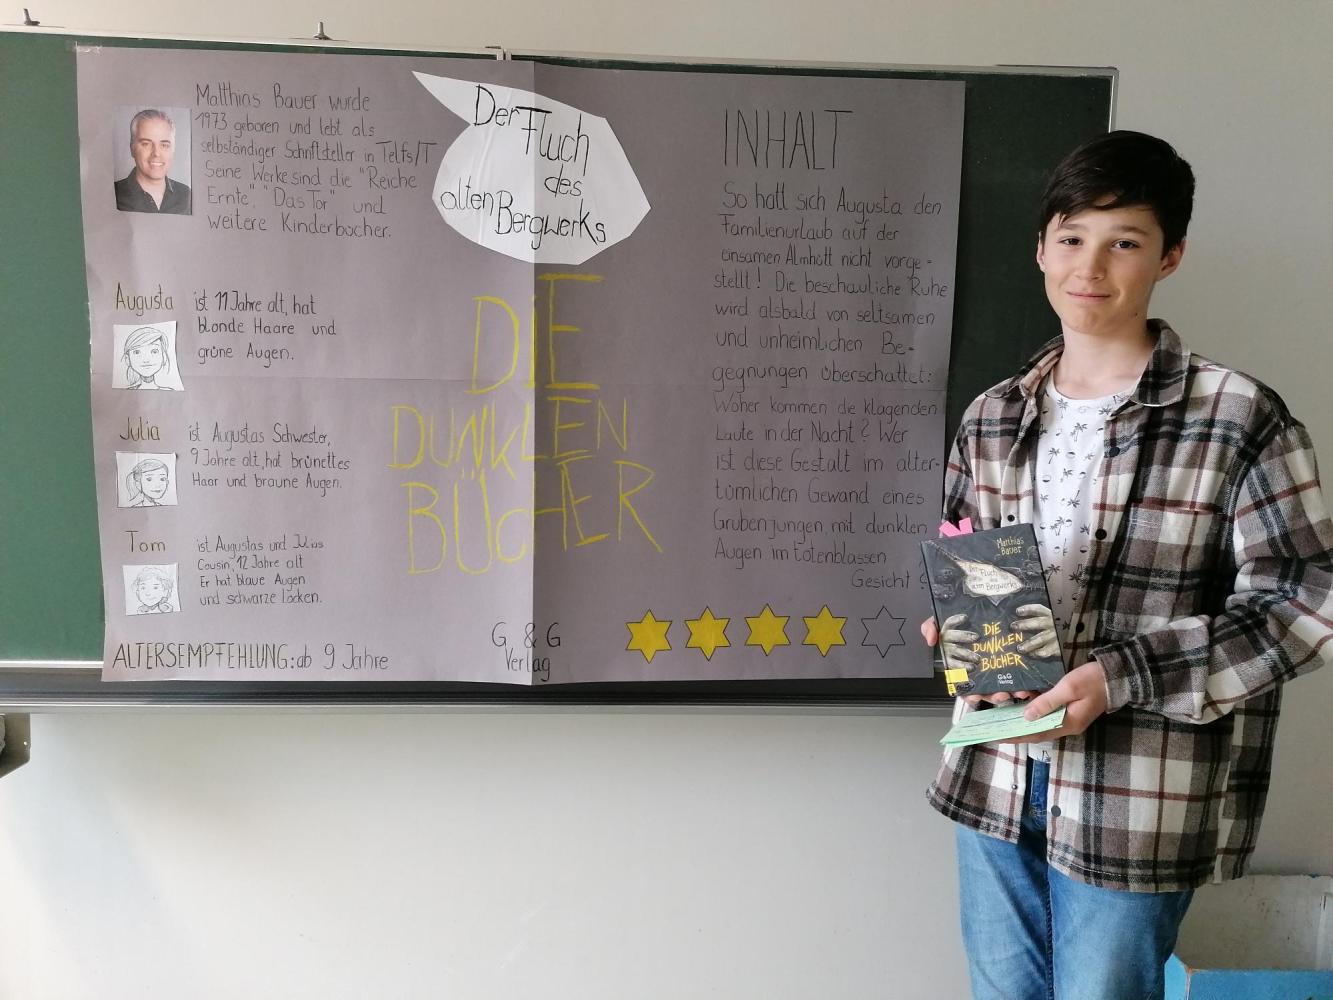 Matthias Bauer wurde
1973 geboren und lebt als
selbständiger Schriftsteller in Telfs/T
Seine Werke sind die "Reiche
Ernte", "Das Tor" und
weitere Kinderbücher.
Augusta
ist 11 Jahre alt, hat
blonde Haare und
grüne Augen.
Julia
ist Augustas Schwester,
9 Jahre alt, hat brünettes
Haar und braune Augen.
Tom
ist Augustas und Julias
Cousin, 12 Jahre alt
Er hat blaue Augen
und schwarze Locken.
ALTERSEMPFEHLUNG: ab 9 Jahre
Der Fluch
des
alten Bergwerks
DIE
DUNKLEN
BÜCHER
G & G
Verlag
INHALT
So hatt sich Augusta den
Familienurlaub auf der
einsamen Almhütt nicht vorge-
stellt! Die beschauliche Ruhe
wird alsbald von seltsamen
und unheimlichen Be-
gegnungen überschattet:
Woher kommen die klagenden
Laute in der Nacht? Wer
ist diese Gestalt im alter-
tümlichen Gewand eines
Grubenjungen, mit dunklen
Augen im totenblassen
Gesicht?
Matthias
Bauer
Der Fluch
des
alten Bergwerks
DIE
DUNKLEN
BÜCHER
G&G
Verlag